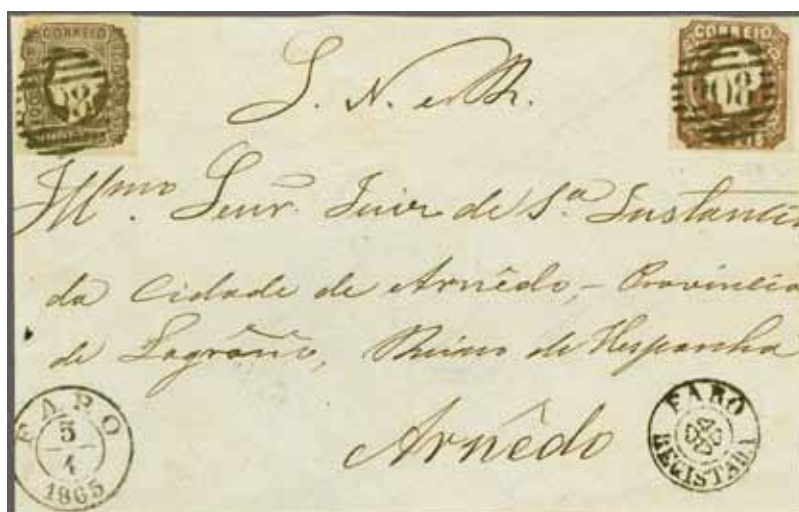 CORREIO
CORREIO
208
S. N. e R.
Ill.mo Senr. Juiz de 1.a Instancia
da Cidade de Arnêdo, - Provincia
de Logroño, Reino de Hespanha
Arnêdo
FARO
5
4
1865
FARO
REGISTADA